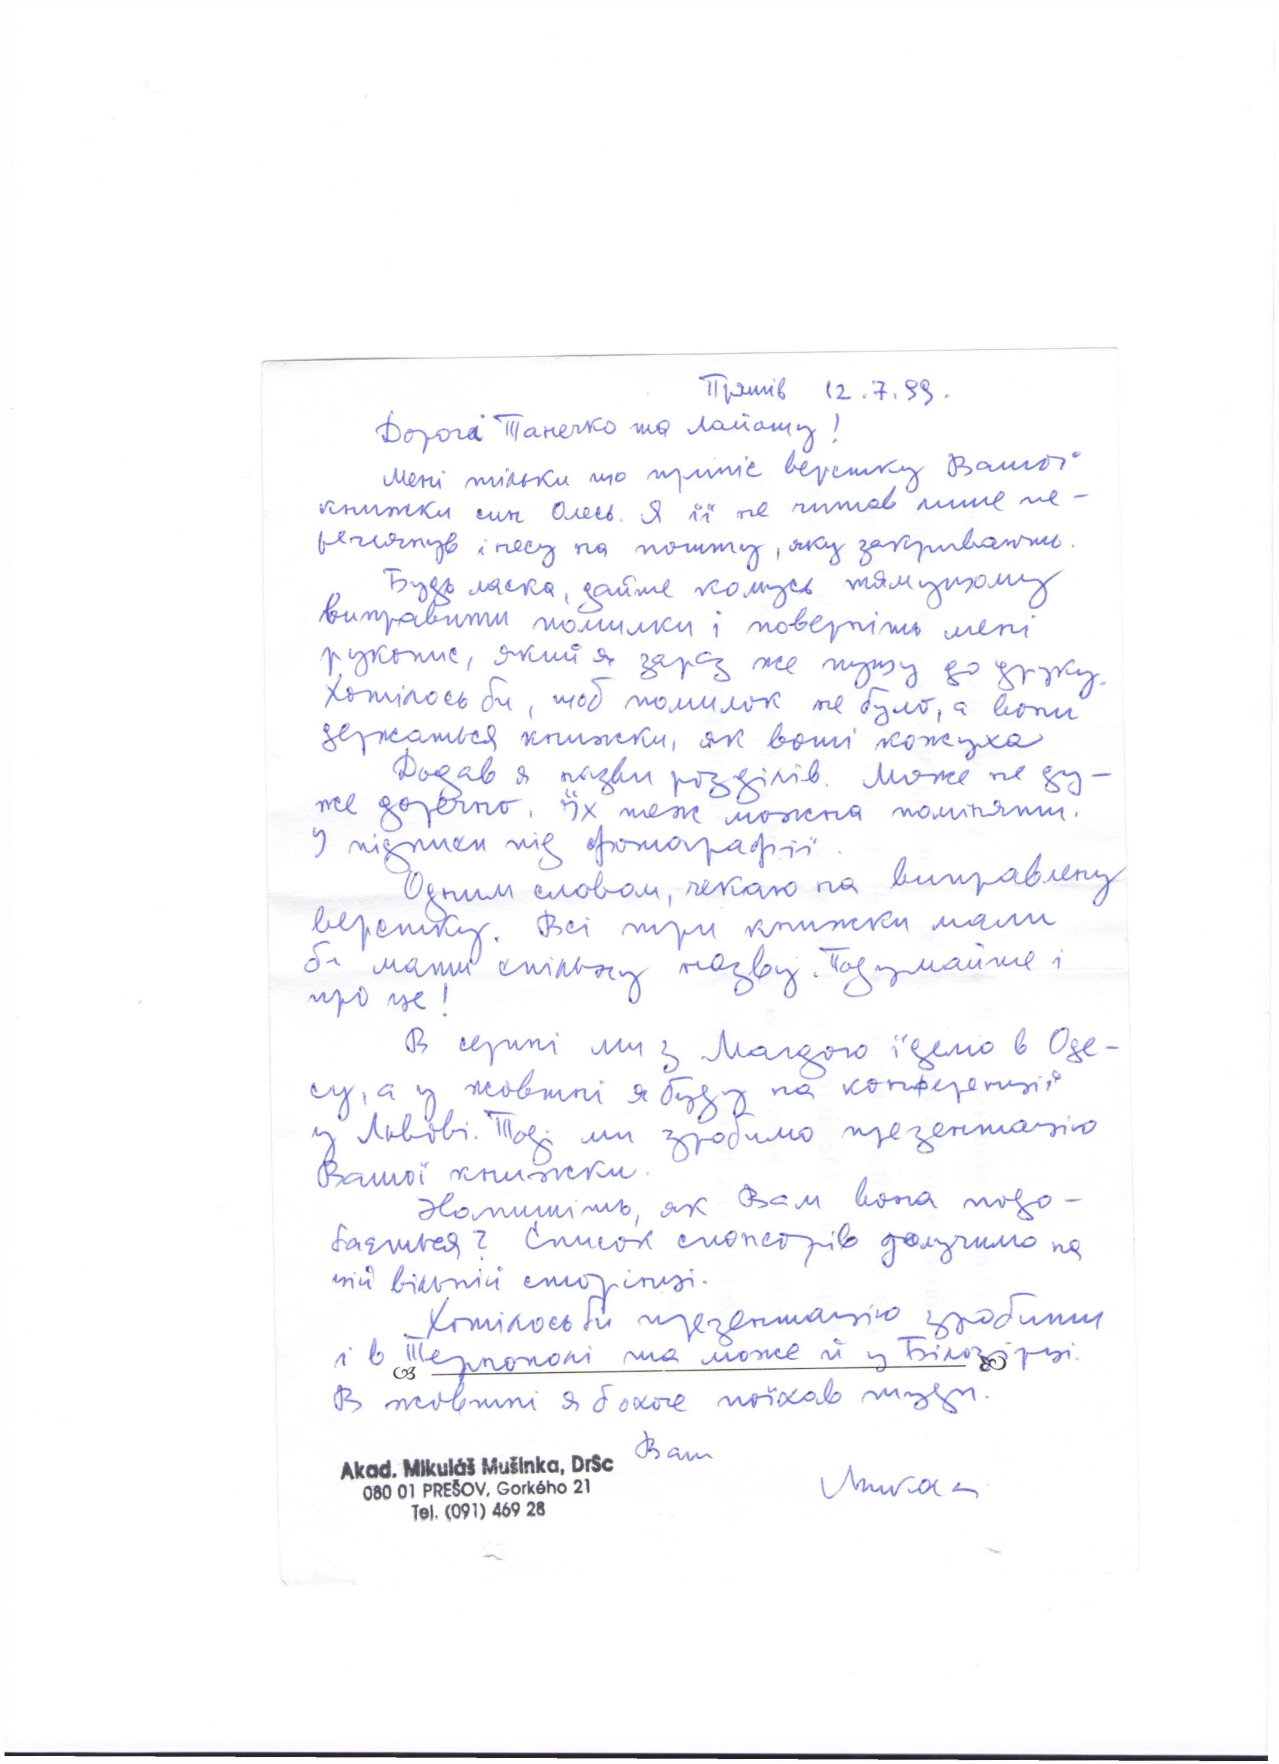 Пряшів 12.7.99.
Дорогі Танечко та Лайошу!
Мені тільки що приніс верстку Вашої
книжки син Олесь. Я її не читав лише пе-
реглянув і несу на пошту, яку закривають.
Будь ласка, дайте комусь тямущому
виправити помилки і поверніть мені
рукопис, який я зараз же пущу до друку.
Хотілось би, щоб помилок не було, а вони
держаться книжки, як воші кожуха
Додав я назви розділів. Може не ду-
же доречно. Їх теж можна поміняти.
І підписи під фотографії.
Одним словом, чекаю на виправлену
верстку. Всі три книжки мали
би мати спільну назву. Подумайте і
про це!
В серпні ми з Магдою їдемо в Оде-
су, а у жовтні я буду на конференції
у Львові. Тоді ми зробимо презентацію
Вашої книжки.
Напишіть, як Вам вона подо-
бається? Список спонсорів долучимо на
цій вільній сторінці.
Хотілось би презентацію зробити
і в Тернополі та може й у Білозірці.
В жовтні я би охоче поїхав туди.
Ваш
Микола
Akad. Mikuláš Mušinka, DrSc
080 01 PREŠOV, Gorkého 21
Tel. (091) 469 28